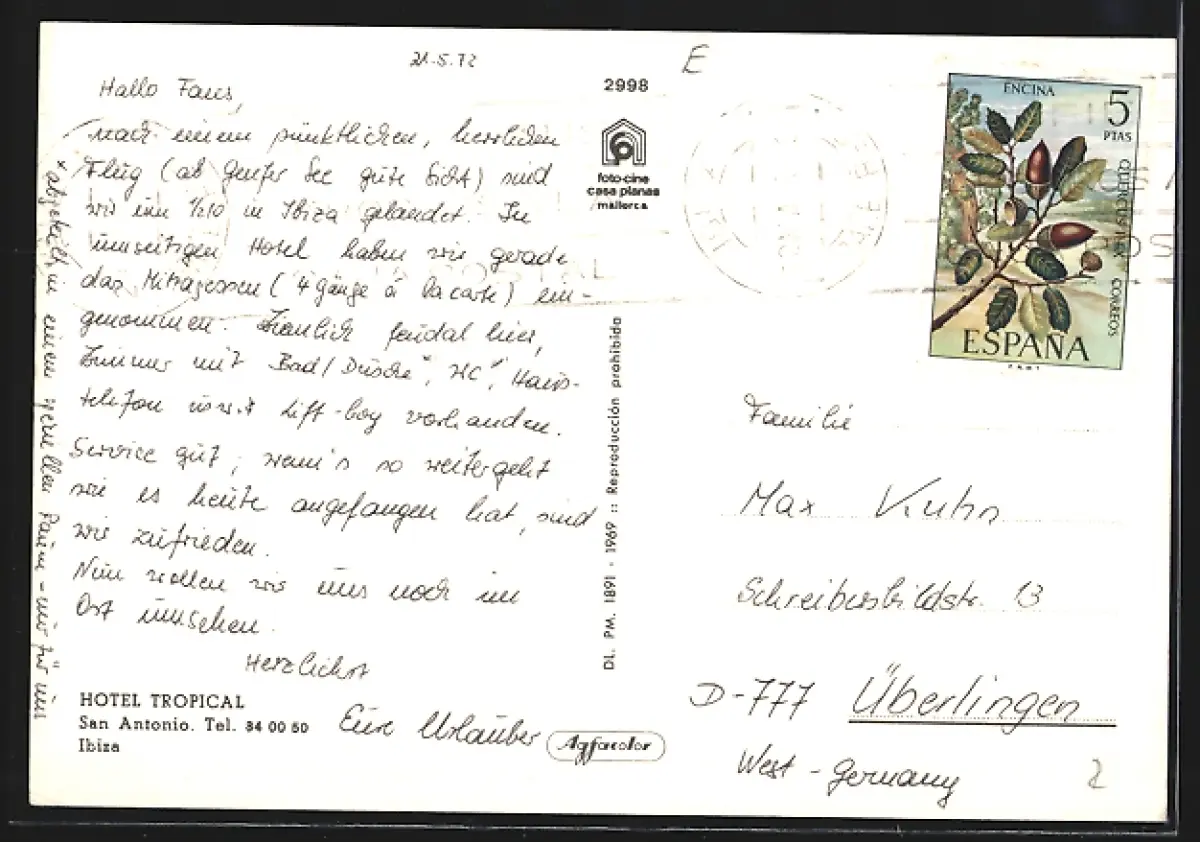 21.5.72
Hallo Fans,
nach einem pünktlichen, herrlichen
Flug (ab Genfer See gute Sicht) sind
wir um ½10 in Ibiza gelandet. Im
umseitigen Hotel haben wir gerade
das Mittagessen (4 Gänge à la carte) ein-
genommen. Ziemlich feudal hier,
Zimmer mit Bad/Dusche*, WC*, Haus-
telefon usw. Lift-boy vorhanden.
Service gut, wenn's so weitergeht
wie es heute angefangen hat, sind
wir zufrieden.
Nun wollen wir uns noch im
Ort umsehen.
Herzlichst
Eure Urlauber
* abgeteilt in einem Raum - nur für uns
HOTEL TROPICAL
San Antonio. Tel. 34 00 50
Ibiza
Agfacolor
2998
foto-cine
casa planas
mallorca
DL. PM. 1891 - 1969 :: Reproducción prohibida
E
ENCINA
5
PTAS
QUERCUS ILEX
CORREOS
ESPAÑA
F.N.M.T.
Familie
Max Kuhn
Schreibersbildstr. 13
D-777 Überlingen
West - Germany
2